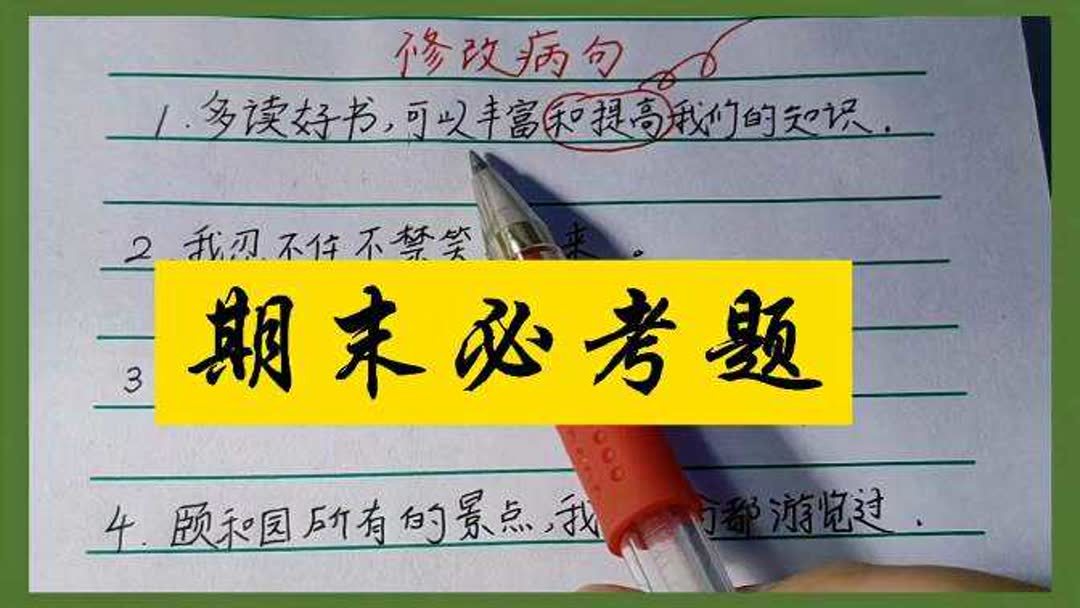 修改病句
1.多读好书,可以丰富和提高我们的知识.
2.我忍不住不禁笑 来。
期末必考题
3
4.颐和园所有的景点,我 都游览过.